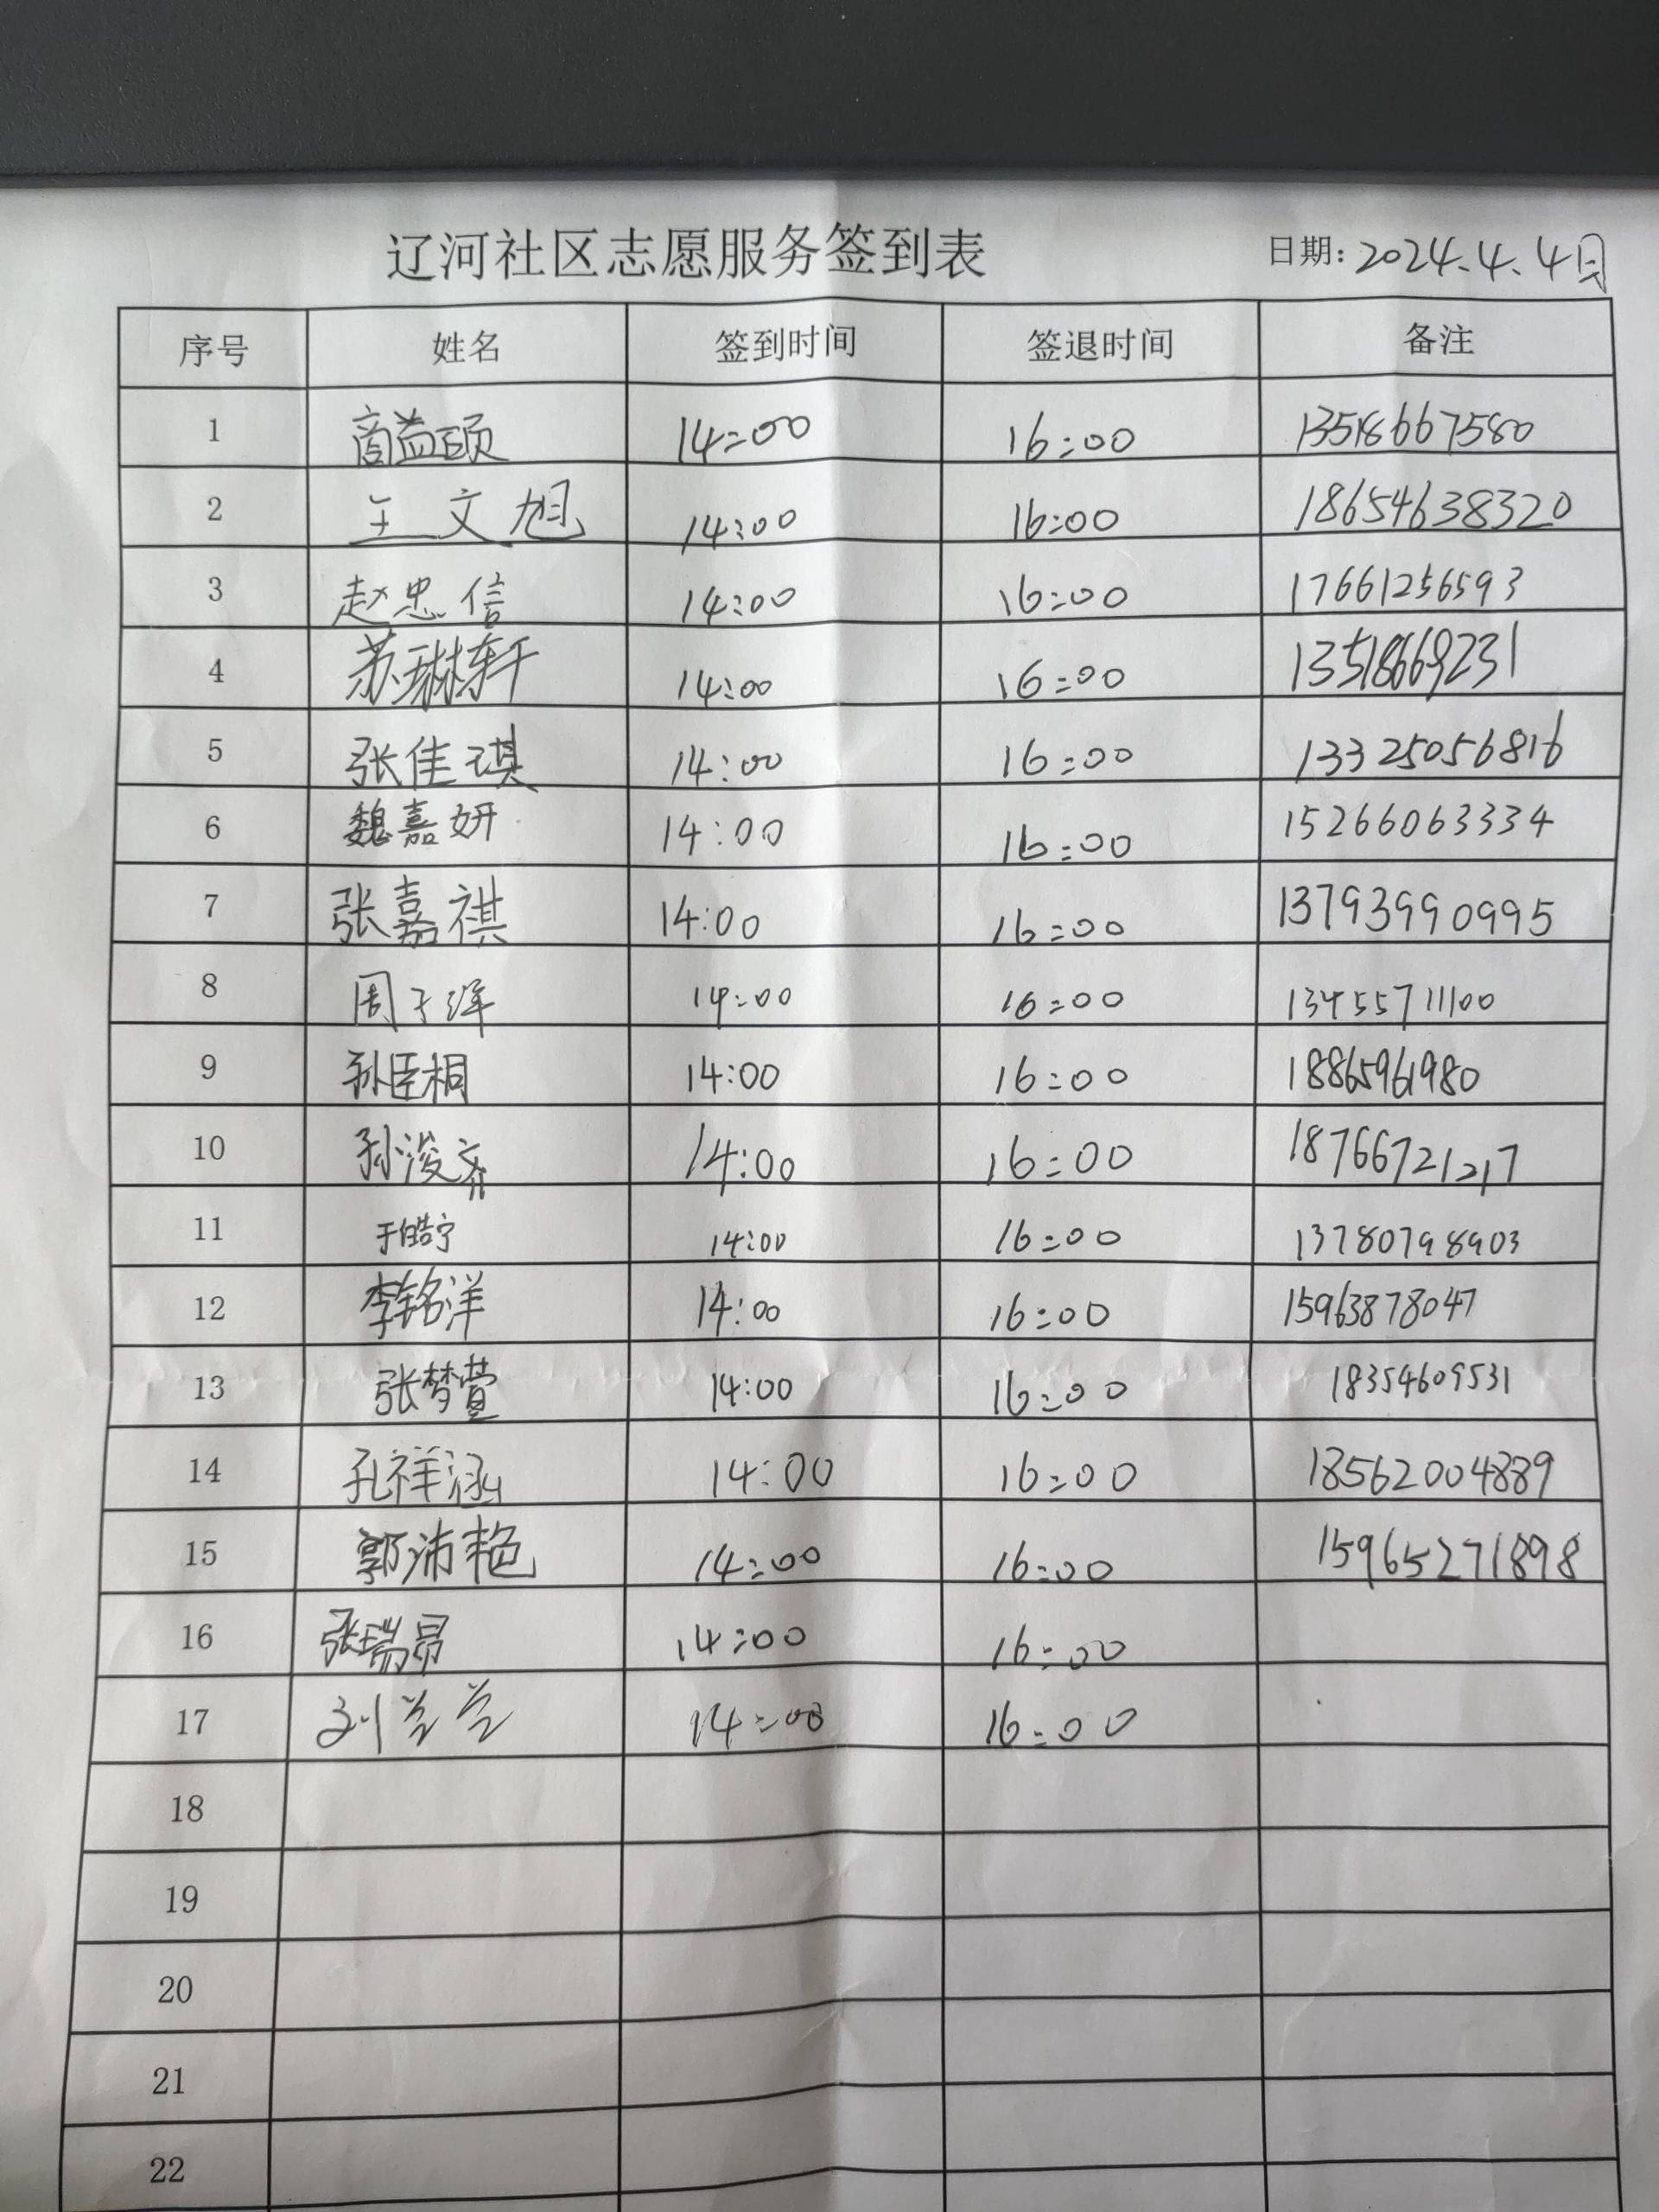 辽河社区志愿服务签到表 日期: 2024.4.4日
序号 姓名 签到时间 签退时间 备注
1 商益硕 14:00 16:00 13518667580
2 王文旭 14:00 16:00 18654638320
3 赵忠信 14:00 16:00 17661256593
4 苏琳轩 14:00 16:00 13518669231
5 张佳琪 14:00 16:00 13325056816
6 魏嘉妍 14:00 16:00 15266063334
7 张嘉祺 14:00 16:00 13793990995
8 周子 14:00 16:00 13455711100
9 孙臣桐 14:00 16:00 18865961980
10 孙浚齐 14:00 16:00 18766721217
11 于皓宁 14:00 16:00 13780798903
12 李铭洋 14:00 16:00 15963878047
13 张梦萱 14:00 16:00 18354609531
14 孔祥涵 14:00 16:00 18562004889
15 郭沛艳 14:00 16:00 15965271898
16 张瑞昂 14:00 16:00
17 刘兰兰 14:00 16:00
18
19
20
21
22